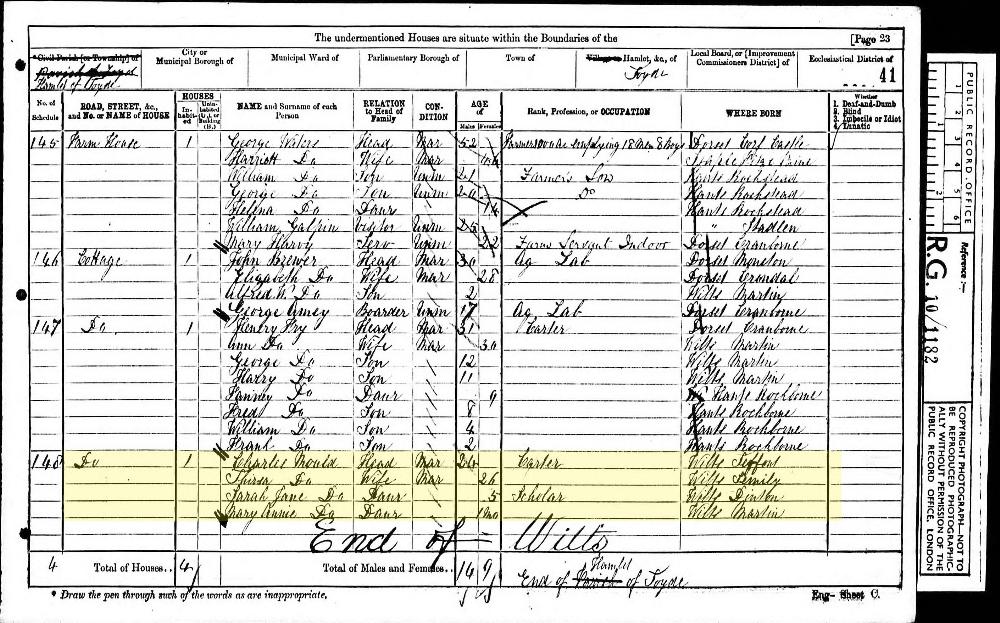 The undermentioned Houses are situate within the Boundaries of the [Page 23
* Civil Parish [or Township] of City or Municipal Borough of Municipal Ward of Parliamentary Borough of Town of Village or Hamlet, &c., of Local Board, or [Improvement Commissioners District] of Ecclesiastical District of
Hamlet of Toyde Toyde 41
No. of Schedule ROAD, STREET, &c., and No. or NAME of HOUSE HOUSES Inhabited Uninhabited (U.), or Building (B.) NAME and Surname of each Person RELATION to Head of Family CONDITION AGE of Males Females Rank, Profession, or OCCUPATION WHERE BORN Whether 1. Deaf-and-Dumb 2. Blind 3. Imbecile or Idiot 4. Lunatic
145 Farm House 1 George Waters Head Mar 52 Dorset Corf Castle
Harriett Do Wife Mar
William Do Son Unm 21 Farmer's Son Hants Rockstead
George Do Son Unm 20 Do Hants Rockstead
Helena Do Daur 14 Hants Rockstead
William Galpin Visitor Unm 25 "
Mary Harvy Serv Unm 22 Farm Servant Indoor Dorset Cranborne
146 Cottage 1 John Brewer Head Mar 30 Ag Lab Dorset
Elizabeth Do Wife Mar 28 Dorset
Alfred W. Do Son 2 Wilts Martin
George Amey Boarder Unm 17 Ag Lab Dorset Cranborne
147 Do 1 Henry Ivy Head Mar 31 Carter Dorset Cranborne
Ann Do Wife Mar 30 Wilts Martin
George Do Son 12 Wilts Martin
Harry Do Son 11 Wilts Martin
Fanny Do Daur 9 Hants Rockborne
Fred Do Son 8 Hants Rockborne
William Do Son 4 Hants Rockborne
Frank Do Son 2 Hants Rockborne
148 Do 1 Charles Mould Head Mar 24 Carter Wilts Teffont
Thirsa Do Wife Mar 26 Wilts
Sarah Jane Do Daur 5 Scholar Wilts Dinton
Mary Annie Do Daur 1 mo Wilts Martin
End of Wilts
4 Total of Houses.. 4 Total of Males and Females.. 14 9 End of Parish Hamlet of Toyde
* Draw the pen through such of the words as are inappropriate. Eng- Sheet C.
PUBLIC RECORD OFFICE
1 2 3 4 5 6
Reference :-
R.G. 10/1182
COPYRIGHT PHOTOGRAPH-NOT TO BE REPRODUCED PHOTOGRAPHICALLY WITHOUT PERMISSION OF THE PUBLIC RECORD OFFICE, LONDON